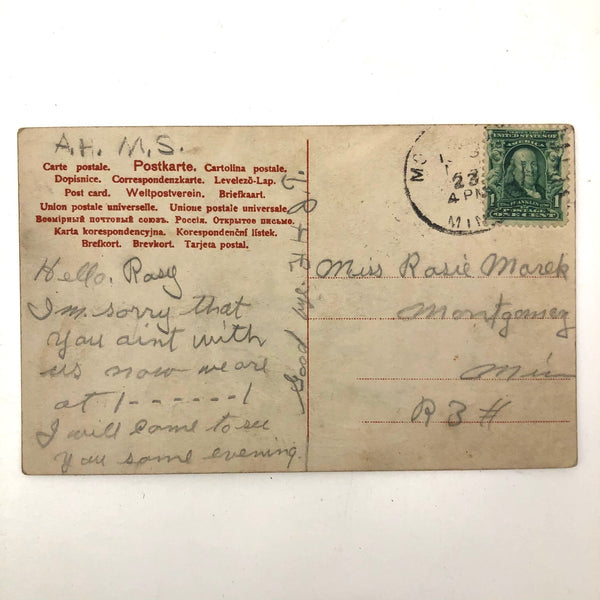 A.H. M.S.
Carte postale. Postkarte. Cartolina postale.
Dopisnice. Correspondenzkarte. Levelező-Lap.
Post card. Weltpostverein. Briefkaart.
Union postale universelle. Unione postale universale.
Всемірный почтовый союзъ. Россія. Открытое письмо.
Karta korespondencyjna. Korespondenční lístek.
Brefkort. Brevkort. Tarjeta postal.
Hello. Rosy
I'm sorry that
you aint with
us now we are
at 1------1
I will come to see
you some evening.
Good bye.
Miss Rosie Marek
Montgomery
Min
R 3 #
MO
23
4 PM
MIN
UNITED STATES OF
AMERICA
1 1
POSTAGE
ONE CENT